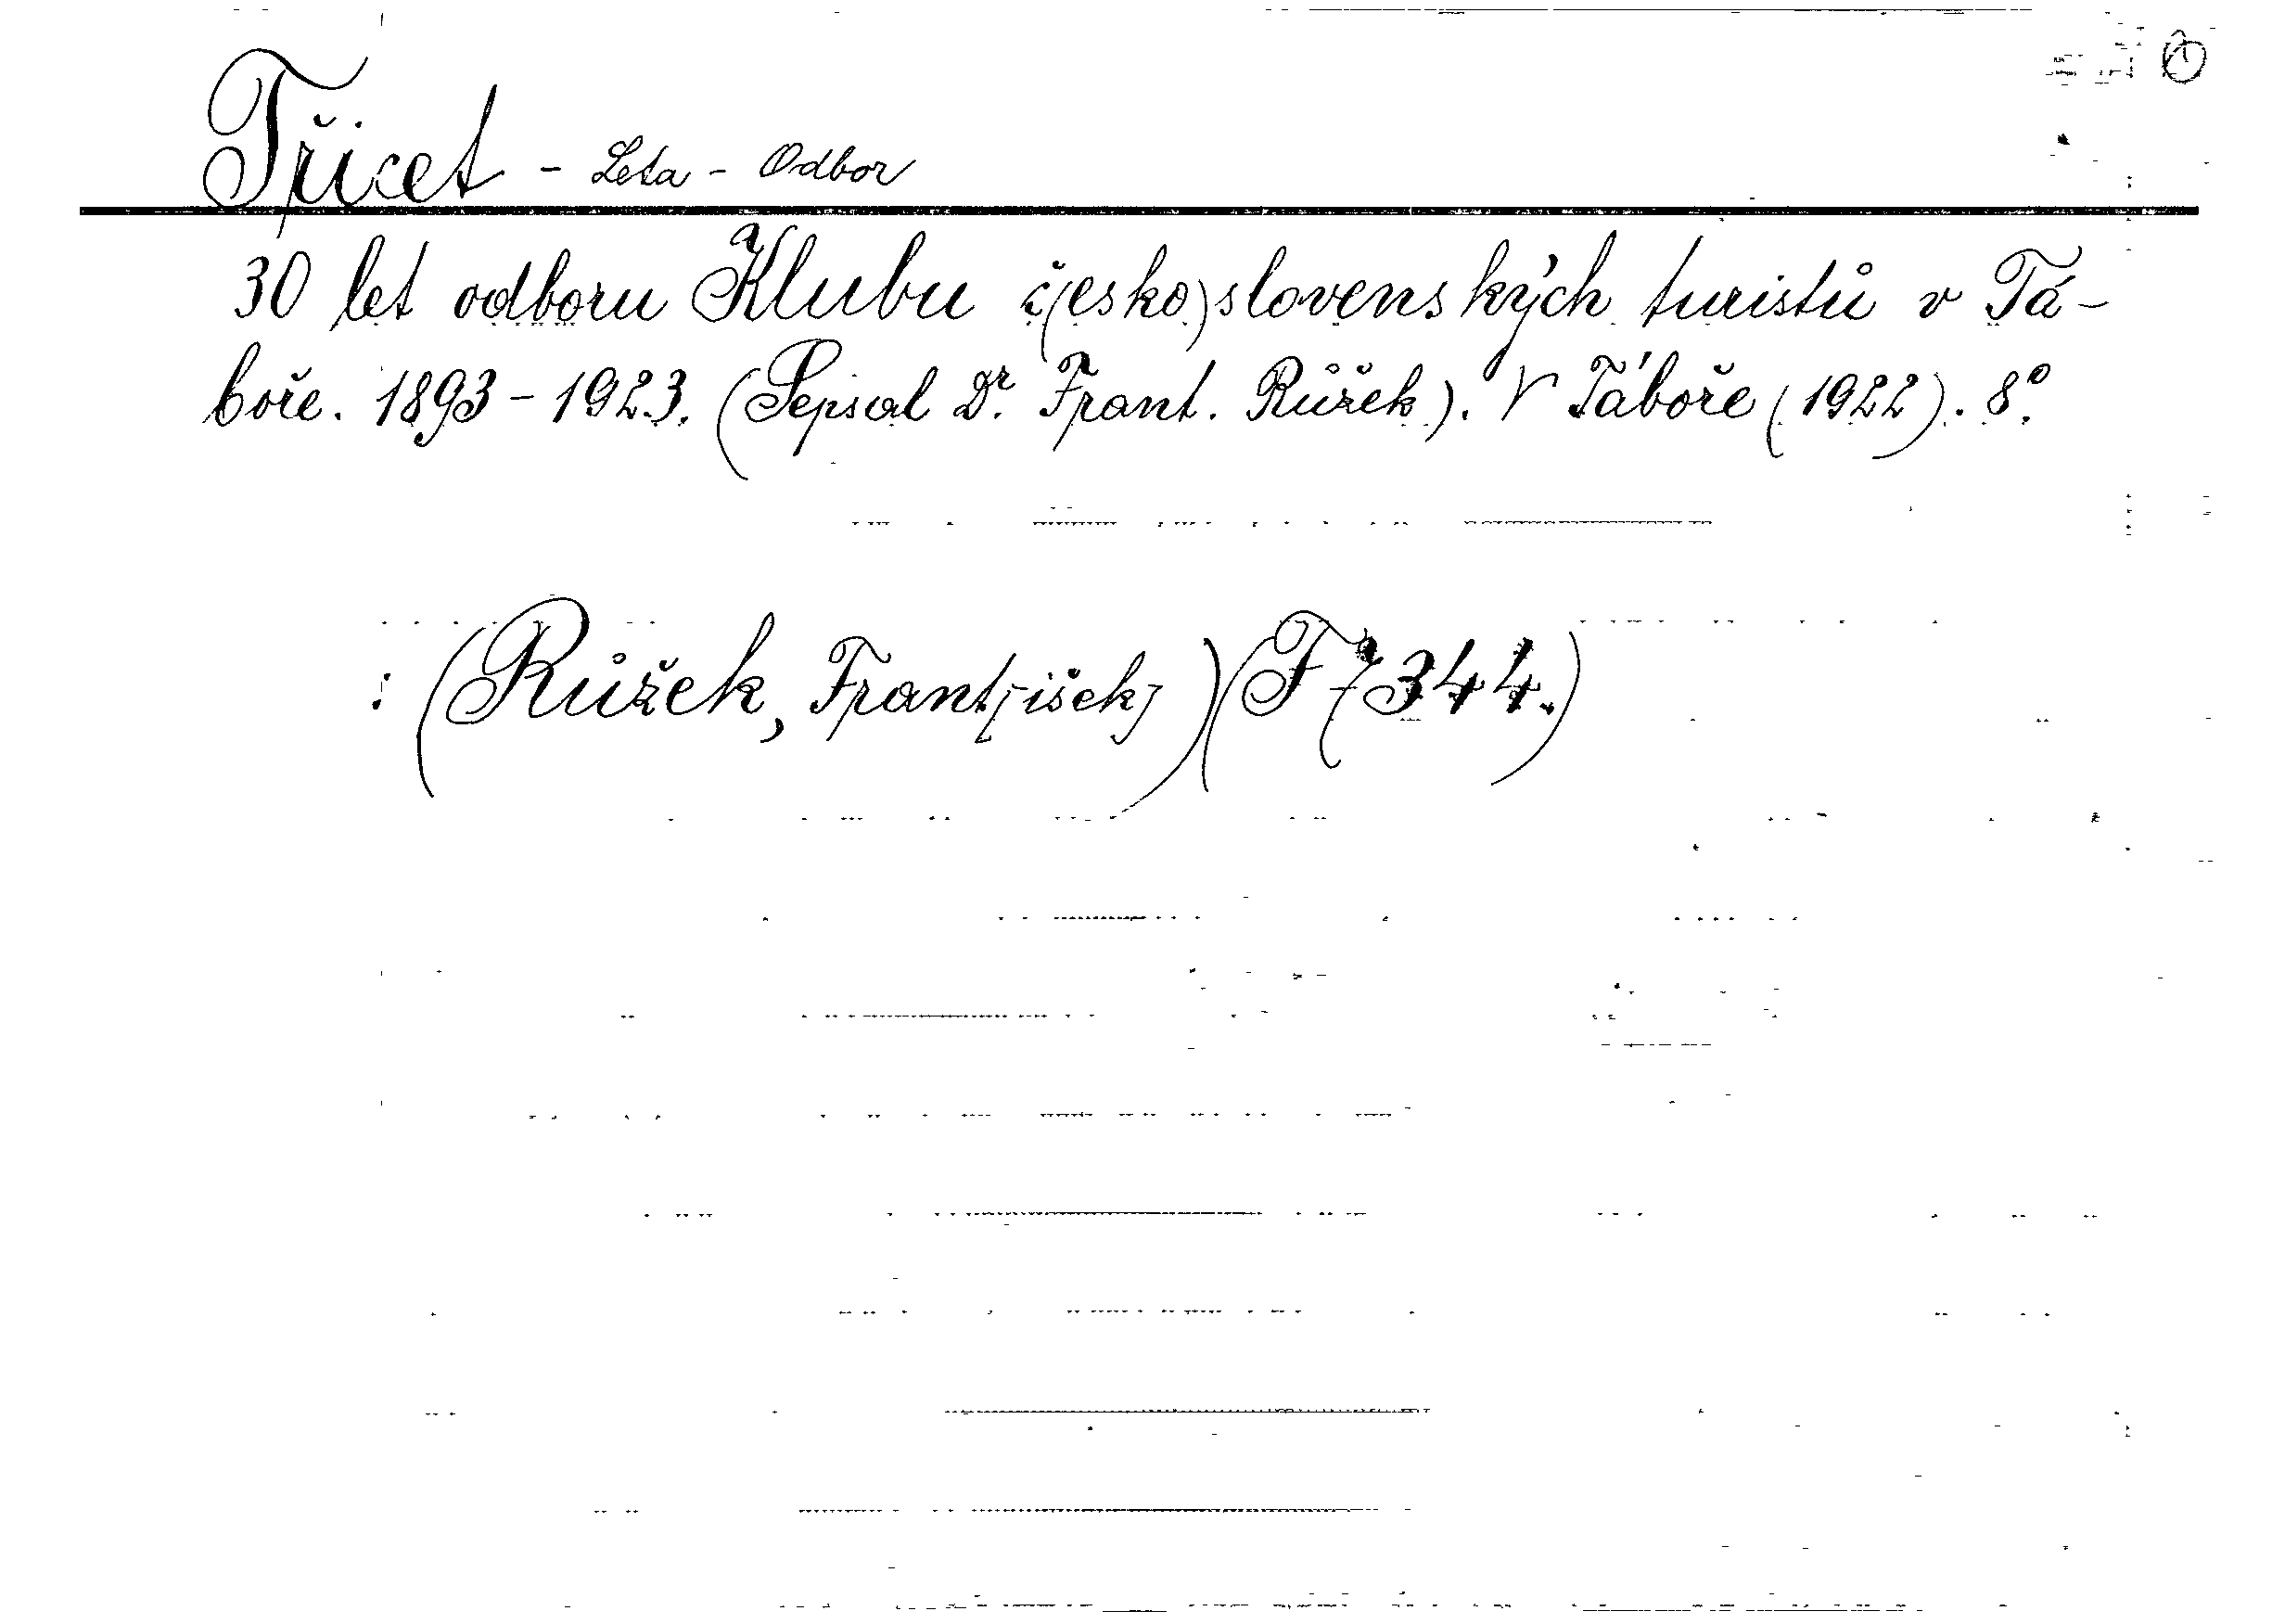 Třicet - Leta - Odbor
30 let odboru Klubu č(esko)slovenských turistů v Tá-
boře. 1893-1923. (Sepsal Dr. Frant. Růžek). V Táboře (1922). 8°.
: (Růžek, Frant[išek]) (F 7344.)